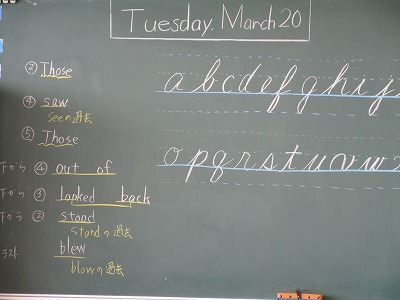 Tuesday, March 20
② Those
④ saw
seeの過去
⑤ Those
下から ④ out of
下から ③ looked back
下から ② stood
standの過去
ラスト blew
blowの過去
a b c d e f g h i j
o p q r s t u v w